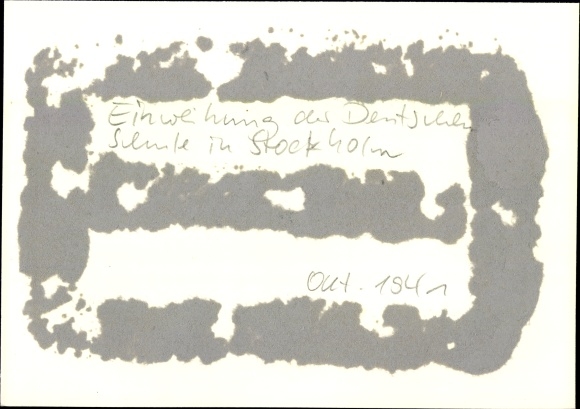 Einweihung der Deutschen
Schule in Stockholm
Okt. 1941